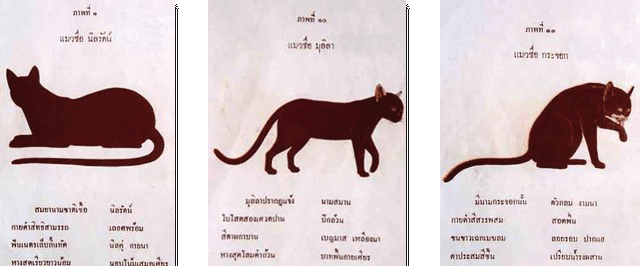 ภาพที่ ๑
แมวชื่อ นิลรัตน์
สมยานามชาติเชื้อ นิลรัตน์
กายดำสิทธิสามรรถ เลอศพร้อม
ฟันเนตรเล็บลิ้นทัด นิลคู่ กายนา
หางสุดเรียวยาวน้อม นอบโน้มเสมอเศียร
ภาพที่ ๑๐
แมวชื่อ มุลิลา
มุลิลาปรากฏแจ้ง นามสมาน
ใบโสตสองเศวตปาน ปักล้วน
สีตาผกาบาน เบญมาส เหลืองนา
หางสุดโลมดำล้วน บาทพื้นกายเศียร
ภาพที่ ๑๑
แมวชื่อ กระจอก
มีนามกระจอกนั้น ตัวกลม งามนา
กายดำศีสรรพสม สอดพื้น
ขนขาวเฉกเมฆลม ลอยรอบ ปากแฮ
ตาประสมสีขึ้น เปรียบน้ำรงผสาน